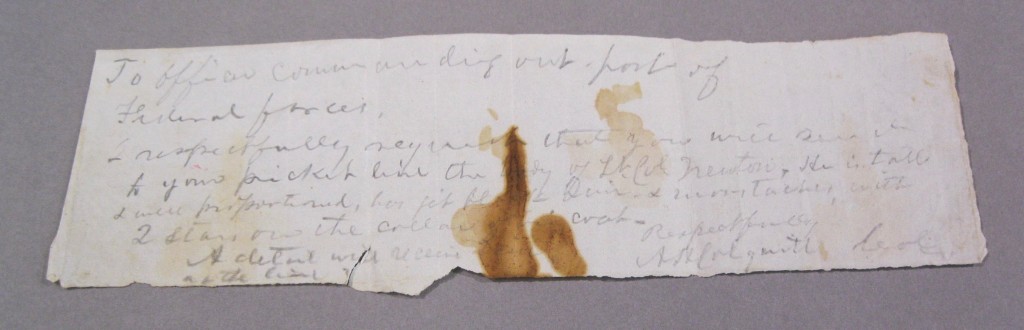 To officer commanding out post of
Federal forces,
I respectfully request that you will send
to your picket line the body of Lt Col Newton, He is tall
& well proportioned, has jet black hair & moustache, with
2 stars on the collar coat
Respectfully
A detail will receive A H Colquitt
at the line